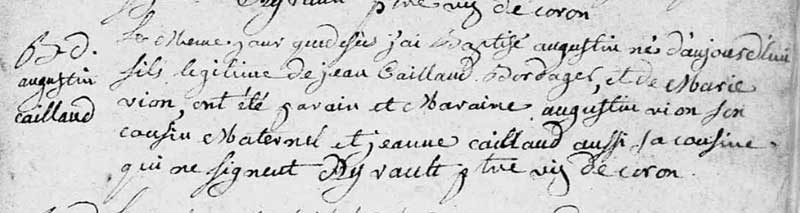 Ry vault ptre vic de coron
Le meme jour que desus j'ai Baptisé augustin né d'aujourd'hui
B. d.
augustin
caillaud
fils legitime de jean Caillaud Bordager, et de Marie
vion, ont été parain et Maraine augustin vion son
cousin Maternel et jeanne caillaud aussi sa cousine
qui ne signent Ry vault ptre vic de coron